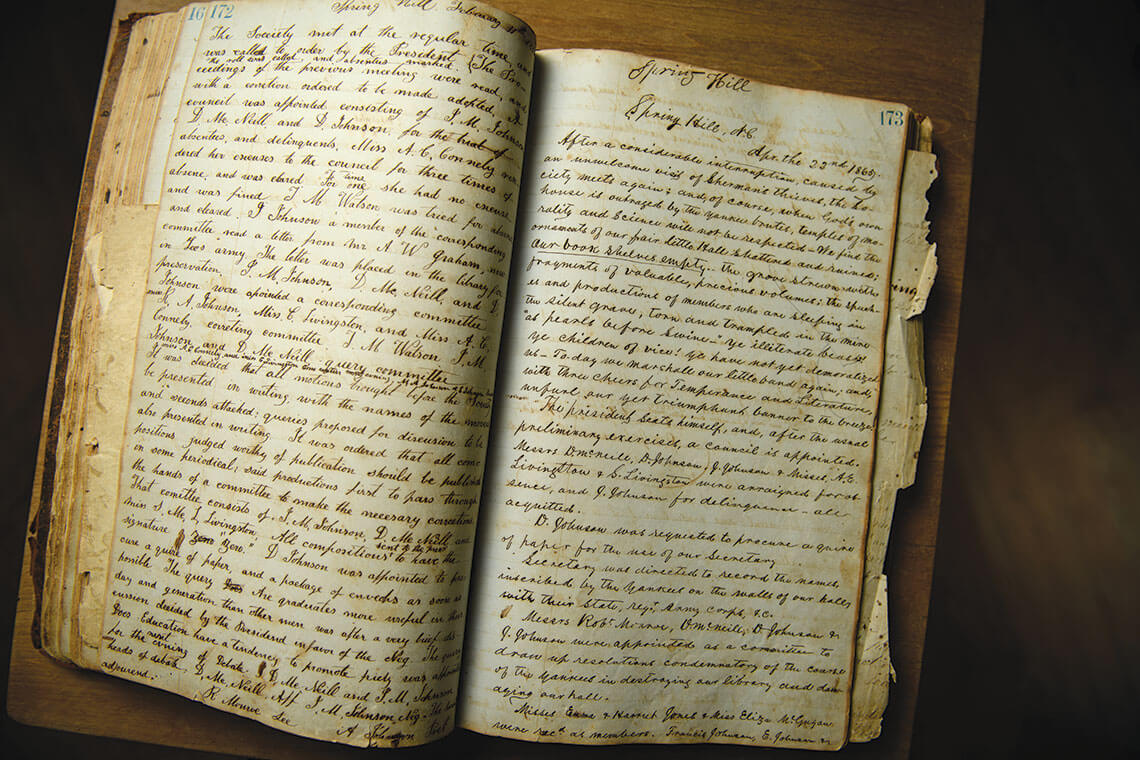 16 172
Spring Hill, February
The Society met at the regular time, and
was called to order by the President. The Pro-
the roll was called, and absentees marked.
ceedings of the previous meeting were read, and
with a corretion ordered to be made adopted, A
council was appointed consisting of J. M. Johnson
D. Mc Neill and D. Johnson, for the trial of
absentees, and delinquents, Miss A. C. Connely ren
dered her excuses to the council for three times of
absenc, and was cleared. For one time she had no excuse,
and was fined. J. M. Watson was tried for absenc
and cleared. J. Johnson a member of the corresponding
committee read a letter from Mr A. W. Graham, now
in "Foos" army. The letter was placed in the library for
preservation. J. M. Johnson, D. Mc. Neill, and D.
Johnson were apointed a corresponding committee
M. A. Johnson, Miss. C. Livingston, and Miss A. C.
Connely, correting committee. J. M. Watson J. M.
Johnson, and D. Mc. Neill query committee
It was decided that all motions brought before the Society
be presented in writing, with the names of the mover
and seconds attached; queries proposed for discusion to be
also presented in writing. It was ordered that all com
positions judged worthy of publication should be publish
in some periodical; said productions first to pass through
the hands of a committee to make the necesary corrections.
That comittee consists of J. M. Johnson, D. Mc. Neill and
miss S. Mc. L. Livingston. All compositions sent to the press to have the
signature, "Zero Zero." D. Johnson was appointed to pro
cure a quire of paper, and a package of envelops as soon as
posible. The query Are graduates more useful in their
day and generation than other men was after a very brief dis-
cussion decided by the President in favor of the Neg. The query
Does Education have a tendency to promote piety was appointed
for the next evening of debate. D Mc Neill and J. M. Johnson
heads of debate. D. Mc. Neill Aff J. M. Johnson, Neg. The
adjourned.
R Monroe Sec
A Johnson
Spring Hill
173
Spring Hill, N.C.
Apr. the 22nd 1865.
After a considerable interruption, caused by
an unwelcome visit of Sherman's thieves, the So-
ciety meets again; and, of course, when God's own
house is outraged by the Yankee brutes, temples of mo-
rality and Science will not be respected— We find the
ornaments of our fair little Hall shattered and ruined;
our book shelves empty— the grove strewn with
fragments of valuable, precious volumes; the speech-
es and productions of members who are sleeping in
the silent grave, torn and trampled in the mire
"as pearls before Swine—" Ye illiterate beasts!
Ye children of vice! ye have not yet demoralized
us— To-day we marshall our little band again; and,
with three cheers for Temperance and Literature,
unfurl our yet triumphant banner to the breeze.
The president Seats himself, and, after the usual
preliminary exercises, a council is appointed.
Messrs D. McNeile, D. Johnson, J. Johnson & Misses, A. E.
Livingston & S. Livingston were arraigned for ab
sence, and J. Johnson for delinquence— all
acquitted.
D. Johnson was requested to procure a quire
of paper for the use of our Secretary.
Secretary was directed to record the names
inscribed by the Yankees on the walls of our halls
with their State, regt, Army corps, &c.
Messrs Robt Monroe, D. McNeile, D. Johnson &
J. Johnson were appointed as a committee to
draw up resolutions condemnatory of the course
of the Yankees in destroying our library and dam
aging our hall.
Misses Emma & Harriet Jones & Miss Eliza McGugan
were recd as members. Francis Johnson, E. Johnson &